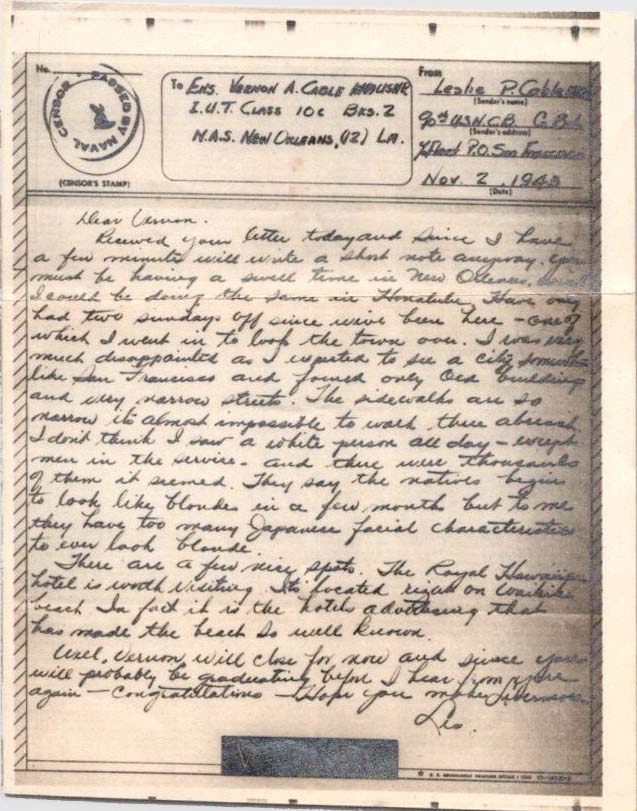 No.
PASSED BY NAVAL CENSOR
(CENSOR'S STAMP)
To ENS. VERNON A. CABLE
I.U.T. CLASS 10c BKS. 2
N.A.S. NEW ORLEANS, (12) LA.
From
Leslie P. Cable
(Sender's name)
90th U.S.N.C.B. C.
(Sender's address)
Fleet P.O. San Francisco
Nov. 2, 1943
(Date)
Dear Vernon.
Received your letter today and since I have
a few minutes will write a short note anyway. You
must be having a swell time in New Orleans,
I could be doing the same in Honolulu. Have only
had two Sundays off since we've been here - one of
which I went in to look the town over. I was very
much disappointed as I expected to see a city somewhat
like San Francisco and found only old buildings
and very narrow streets. The sidewalks are so
narrow it's almost impossible to walk three abreast.
I don't think I saw a white person all day - except
men in the service - and there were thousands
of them it seemed. They say the natives begin
to look like blondes in a few months but to me
they have too many Japanese facial characteristics
to ever look blonde.
There are a few nice spots. The Royal Hawaiian
hotel is worth visiting. Its located right on Waikiki
beach. In fact it is the hotels advertising that
has made the beach so well known.
Well, Vernon, will close for now and since you
will probably be graduating before I hear from you
again - Congratulations - Hope you make
Les.